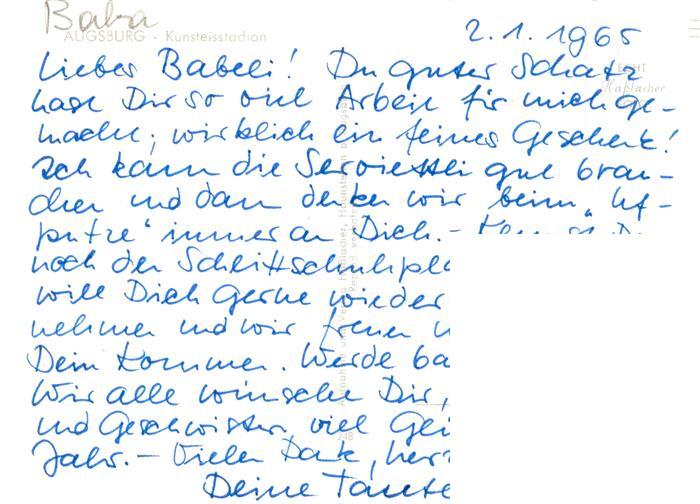 Baba
AUGSBURG - Kunsteisstadion
2.1.1965
Liebes Babeli! Du guter Schatz
hast Dir so viel Arbeit für mich ge-
macht, wirklich ein feines Geschenk!
Ich kann die Serviettli gut brau-
chen und dann denken wir beim "Uf-
putze" immer an Dich. -
noch den Schlittschuhpl
will Dich gerne wieder
nehmen und wir freuen
Dein Kommen. Werde ba
Wir alle wünsche Dir,
und Geschwister viel Glü
Jahr. - Vielen Dank, herz
Deine Tante